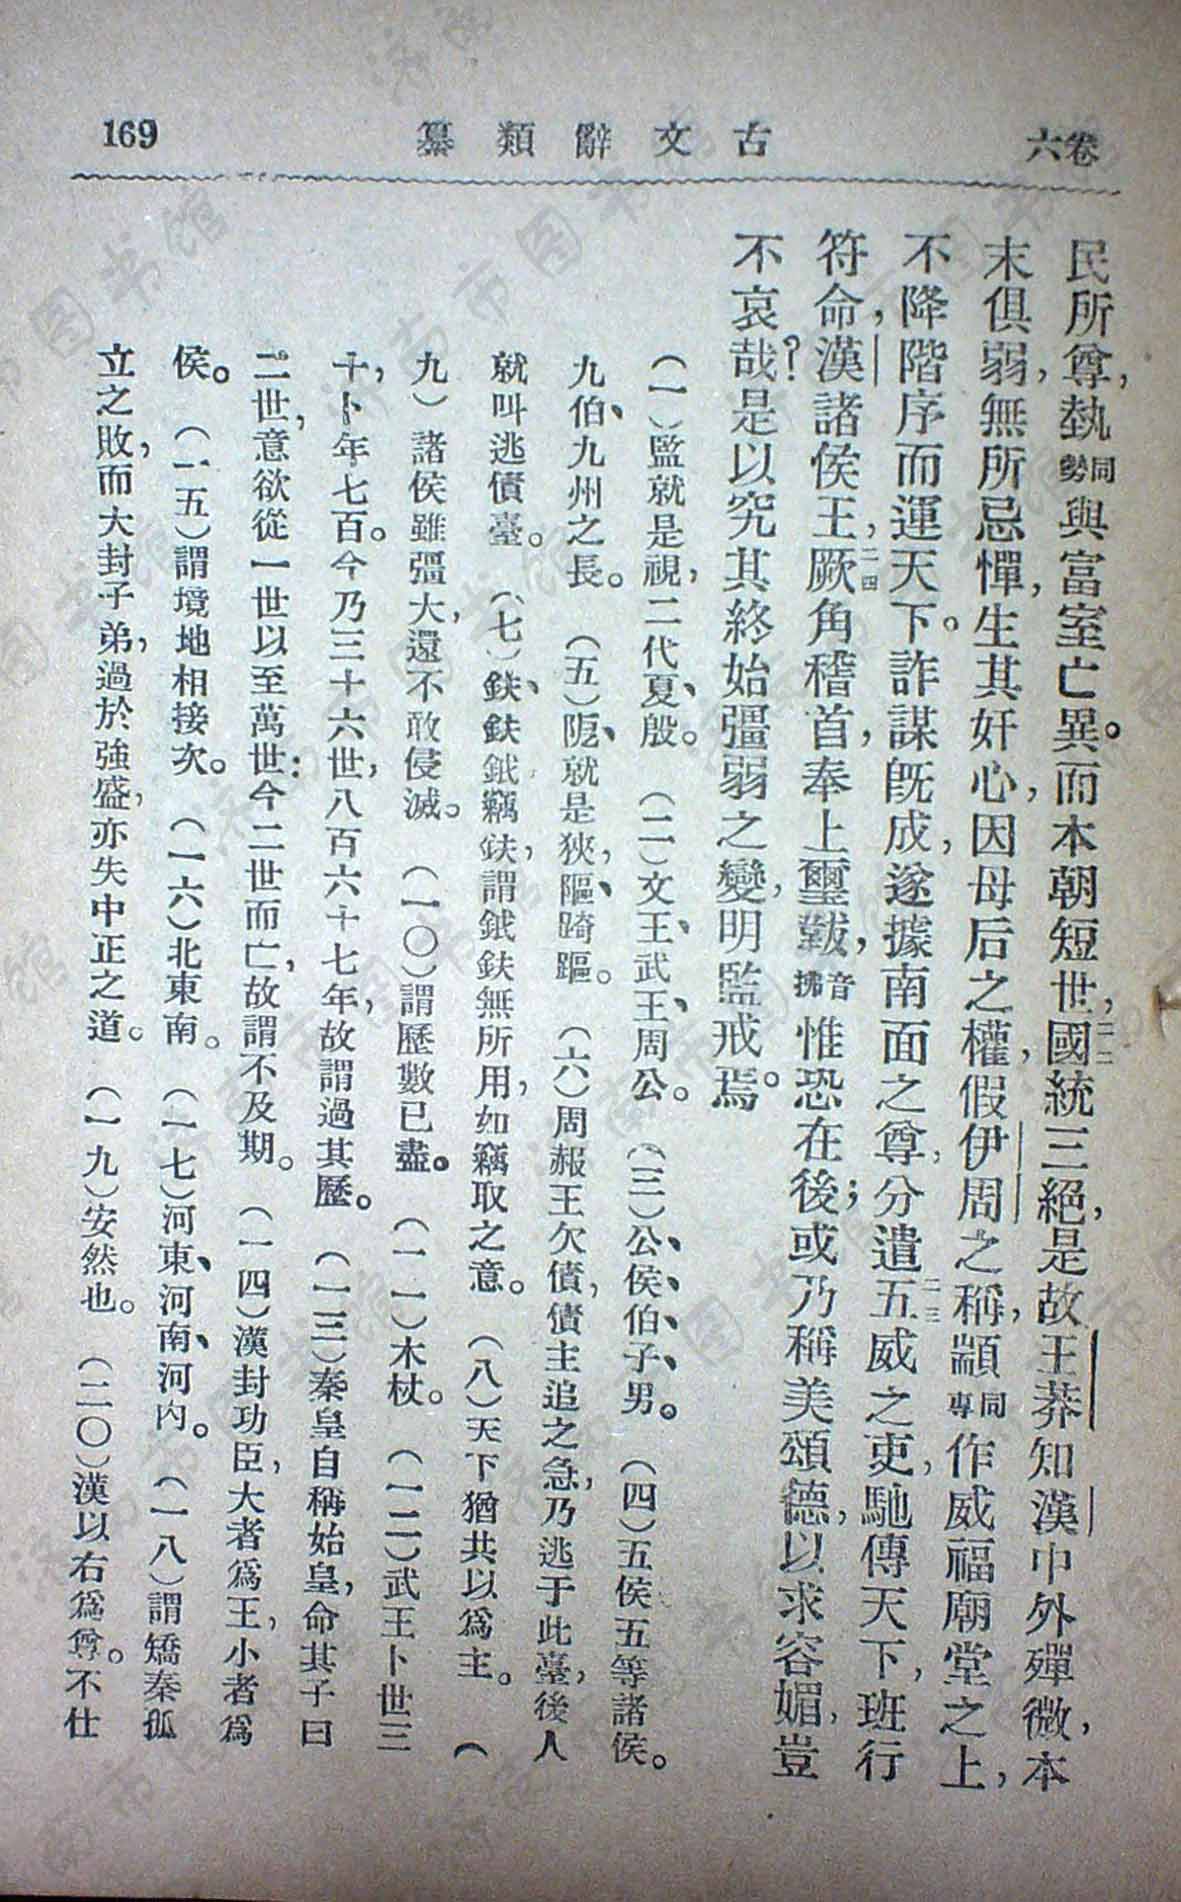 六卷
古文辭類纂
169
民所尊，埶同勢與富室亡異。而本朝短世，二二國統三絕，是故王莽知漢中外殫微，本
末俱弱，無所忌憚，生其奸心，因母后之權，假伊周之稱，顓同專作威福廟堂之上，
不降階序而運天下。詐謀旣成，遂據南面之尊，分遣二三五威之吏，馳傳天下，班行
符命，漢諸侯王，二四厥角稽首，奉上璽韍，音拂惟恐在後；或乃稱美頌德，以求容媚，豈
不哀哉？是以究其終始彊弱之變，明監戒焉。
（一）監就是視，二代夏、殷。（二）文王、武王、周公。（三）公、侯、伯、子、男。（四）五侯五等諸侯。
九伯、九州之長。（五）阨、就是狹，隔、踦軀。（六）周赧王欠債，債主追之急，乃逃于此臺，後人
就叫逃債臺。（七）鈇、鈇鉞竊，鈇謂鉞鈇無所用，如竊取之意。（八）天下猶共以爲主。（
九）諸侯雖彊大，還不敢侵滅。（一〇）謂歷數已盡。（一一）木杖。（一二）武王卜世三
十，卜年七百。今乃三十六世，八百六十七年，故謂過其歷。（一三）秦皇自稱始皇，命其子曰
二世，意欲從一世以至萬世：今二世而亡，故謂不及期。（一四）漢封功臣，大者爲王，小者爲
侯。（一五）謂境地相接次。（一六）北東南。（一七）河東、河南、河內。（一八）謂矯秦孤
立之敗，而大封子弟，過於強盛，亦失中正之道。（一九）安然也。（二〇）漢以右爲尊。不仕